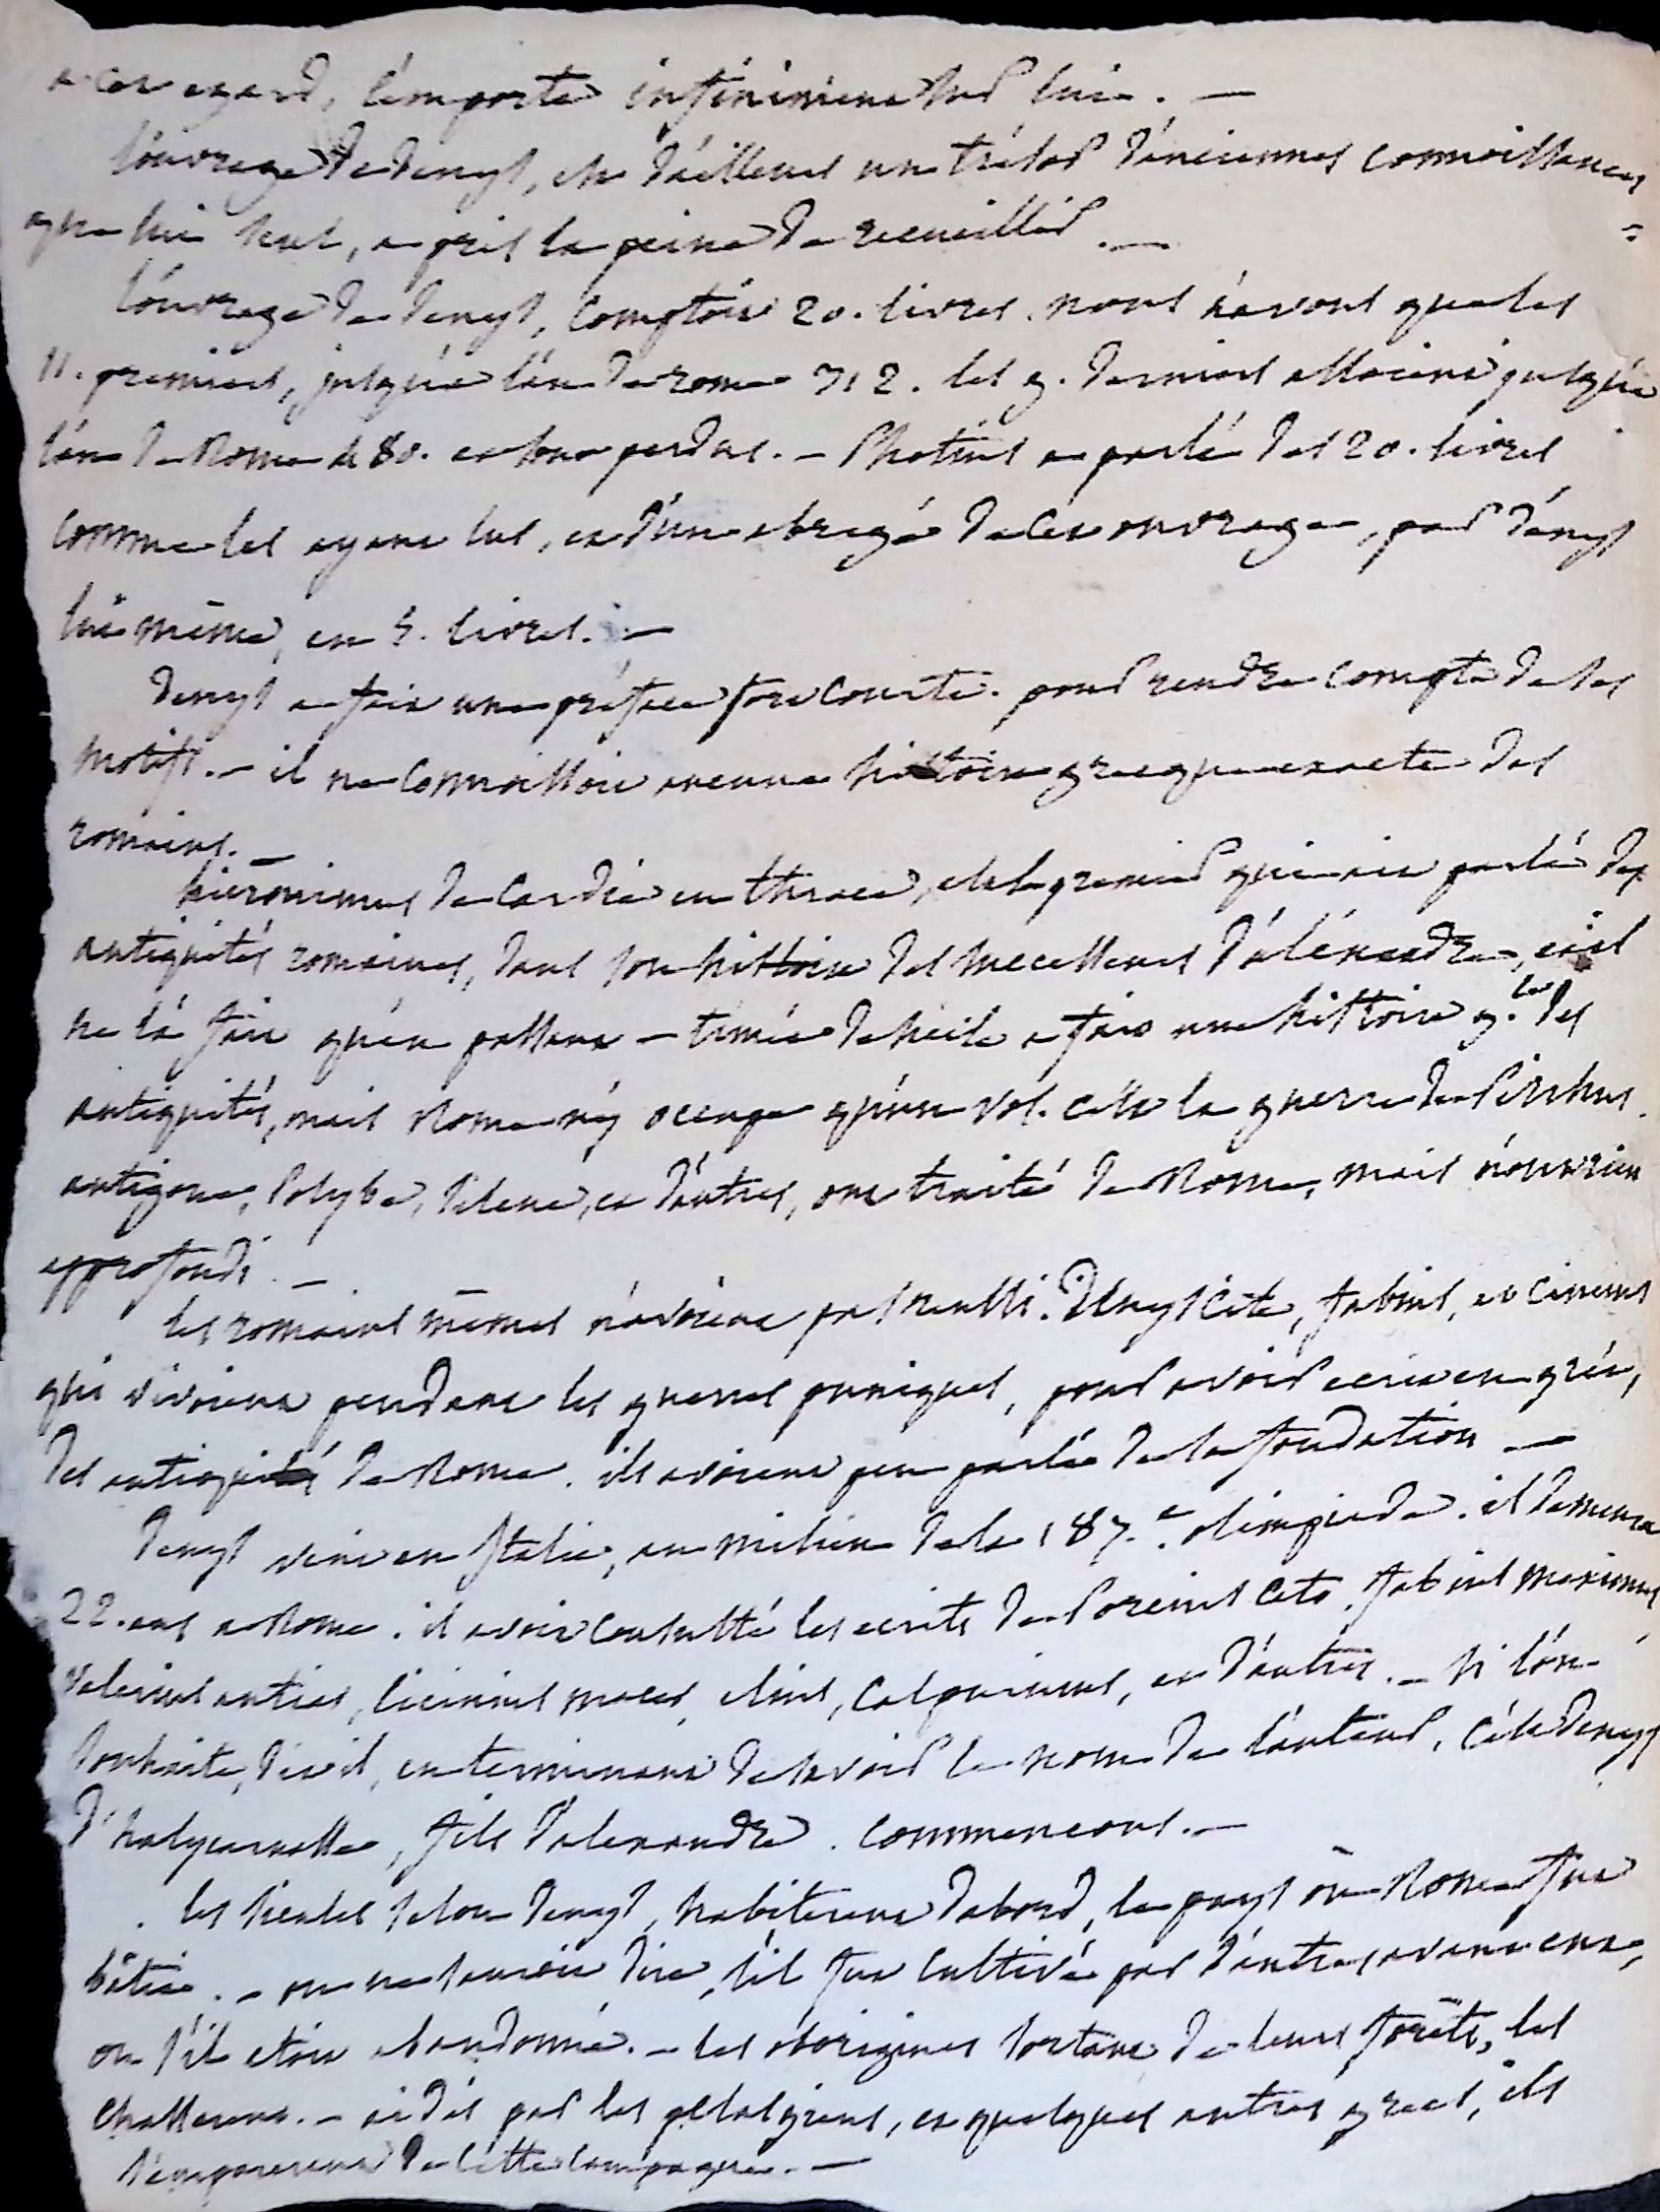 a cet egard, l'emporte infiniment sur lui. —
l'ouvrage de denys, est d'ailleurs un trésor d'anciennes connoissances
que lui seul, a pris la peine de recueillir. —
l'ouvrage de denys, comptoit 20. livres. nous n'avons que les
11. premiers, jusqu'a l'an de rome 312. les 9. derniers alloient jusqu'a
l'an de Rome 480. et sont perdus. — Photius a parlé des 20. livres
comme les ayant lus, et d'un abregé de cet ouvrage, par denys
lui même, en 5. livres. —
denys a fait une préface fort courte. pour rendre compte de ses
motifs. — il ne connoissoit aucune histoire grecque exacte des
romains. —
hiéronimus de Cardie en thrace, est le premier qui ait parlé des
antiquités romaines, dans son histoire des successeurs d'aléxandre, et il
ne l'a fait qu'en passant — timée de sicile a fait une histoire g.le des
antiquités, mais Rome n'y occupe qu'un vol. c'est la guerre de Pirrhus.
antigone, Polybe, silene, et d'autres, ont traité de Rome, mais n'ont rien
approfondi. —
les romains mêmes n'avoient pas reussi. Denys cite, fabius, et cincius
qui vivoient pendant les guerres puniques, pour avoir ecrit en grec,
des antiquités de Rome. ils avoient peu parlé de la fondation —
denys vint en Italie, au milieu de la 187.e olimpiade. il demeura
22. ans a Rome. il avoit consulté les ecrits de Porcius Cato, fabius maximus
valerius antias, licinius macer, elius, calpurnius, et d'autres. — si l'on
souhaite, dit il, en terminant de savoir le nom de l'auteur, c'est denys
d'halycarnasse, fils d'alexandre. commencons. —
les sicules selon denys, habiterent d'abord, le pays où Rome fut
bâtie. — on ne sauroit dire, s'il fut cultivé par d'autres avant eux,
ou s'il etoit abandonné. — les aborigines sortant de leurs forêts, les
chasserent. — aidés par les pelasgiens, et quelques autres grecs, ils
s'emparerent de cette campagne. —